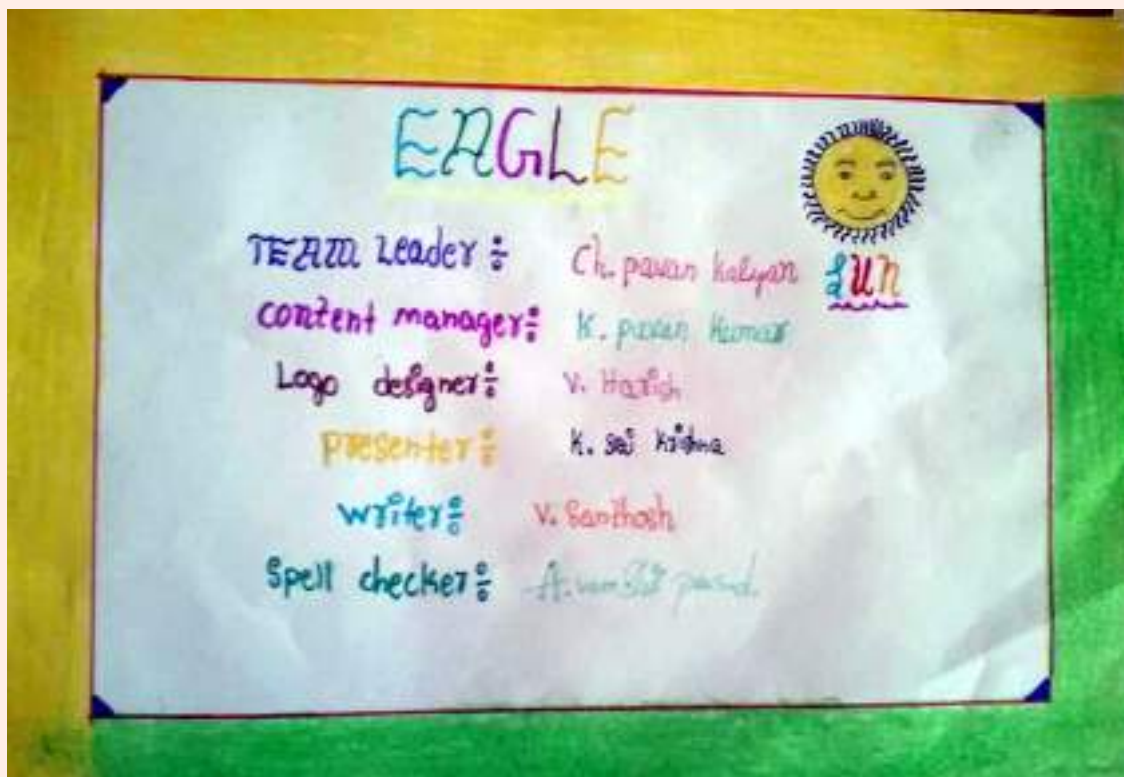 EAGLE
TEAM Leader: Ch. pavan kalyan
SUN
content manager: K. pavan kumar
Logo designer: V. Harish
presenter: K. sai krishna
writer: V. Santhosh
Spell checker: A.